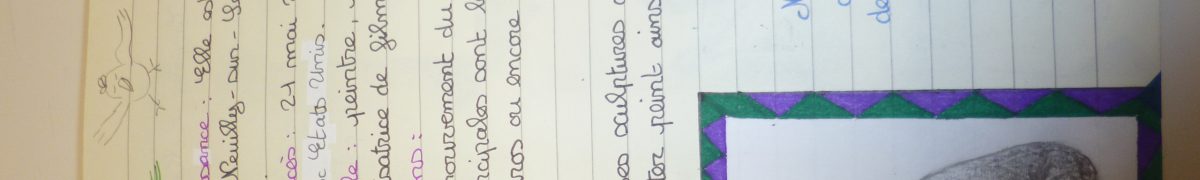 sance : Elle es
Neuilly-sur-Se
cès : 21 mai
x États Unis.
le : peintre,
satrice de film
ns :
mouvement du
ncipales sont l
ros ou encore
es sculptures
ter peint ains
de